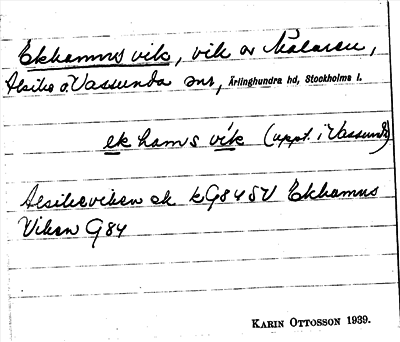 Ekhamns vik, vik av Mälaren,
Alsike o. Vassunda snr, Ärlinghundra hd, Stockholms l.
ek hamns vik (uppt. i Vassunda)
Alsikeviken ek kG84SV Ekhamns
Viken G84
KARIN OTTOSSON 1939.